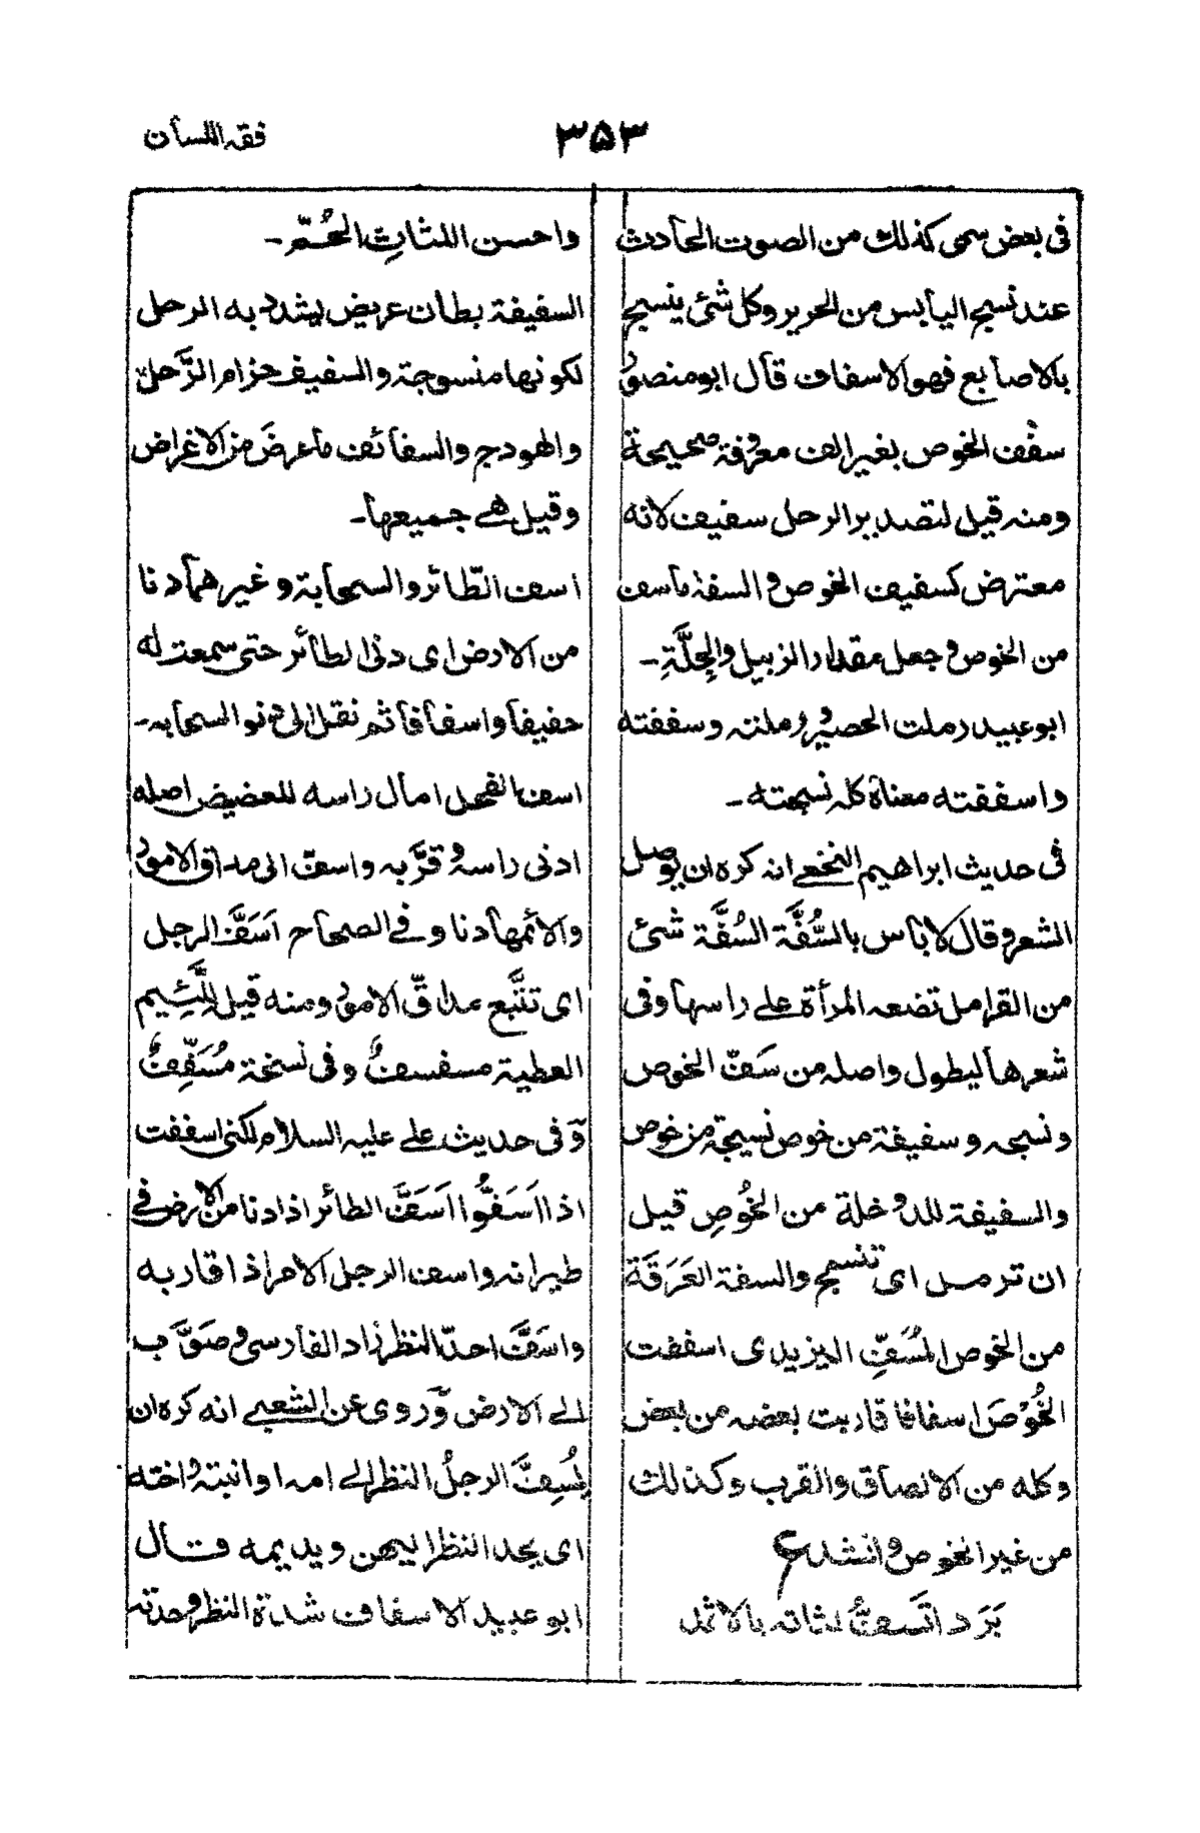 فقه اللسان
۳۵۳
فى بعض سمى كذلك من الصوت الحادث
عند نسج اليابس من الحرير وكل شئ ينسج
بالاصابع فهو الاسفاف قال ابو منصور
سفف الخوص بغير الف معروفة صحيحة
ومنه قيل لتصدير الرحل سفيف لانه
معترض كسفيف الخوص و السفة ما سف
من الخوص و جعل مقدار الزبيل والجِلَّةِ۔
ابو عبيد رملت الحصير و رملته وسففته
واسففته معناه كله نسجته۔
فى حديث ابراهيم النخعي انه كره ان يوصل
الشعر وقال لا باس بالسُّفَّة السُفَّة شئ
من القرامل تضعه المرأة على راسها وفى
شعرها ليطول واصله من سَفّ الخوص
ونسجه وسفيفة من خوص نسيجة من خوص
والسفيفة للدوخلة من الخُوصِ قيل
ان ترمل اى تنسج والسفة العَرَقَة
من الخوص المُسَفِّ اليزيدى اسففت
الخُوْصَ اسفافا قاربت بعضه من بعض
وكله من الالصاق والقرب وكذالك
من غير الخوص و انشد ع
بَرَد اتَسفُّ لثاته بالاثمد
واحسن اللثاتِ الحُمّ۔
السفيفة بطان عريض يشدد به الرحل
لكونها منسوجة والسفيف حزام الرَّحل
والهودج والسفائف ما عرضَ من الاغراض
وقيل هے جميعها۔
اسف الطّائر والسحابة وغيرهما دنا
من الارض اى دنى الطائر حتى سمعت له
حفيفا واسفافا ثم نقل الى دنو السحابه۔
اسف الفحل امال راسه للعضيض اصله
ادنى راسه و قرَّبه واسفّ الى مداق الامور
والائمها دنا وفے الصحاح اَسَفَّ الرجل
اى تتَّبع مداقّ الامور ومنه قيل لِلَّئِيم
العطية مسفسفٌ وفى نسخة مُسَفِّفٌ
وَفى حديث علے عليه السلام لكنى اسففت
اذا اَسَفُّوا اَسَفَّ الطائر اذا دنا من الارض فے
طيرانه واسف الرجل الامر اذا قاربه
واسَفَّ احدّ النظر زاد الفارسى و صَوَّب
الے الارض وَروى عن الشعبے انه كره ان
يُسِفَّ الرجلُ النظر الے امه او ابنته و اخته
اى يحد النظر اليهن ويديمه قال
ابو عبيد الاسفاف شدة النظر و حدته